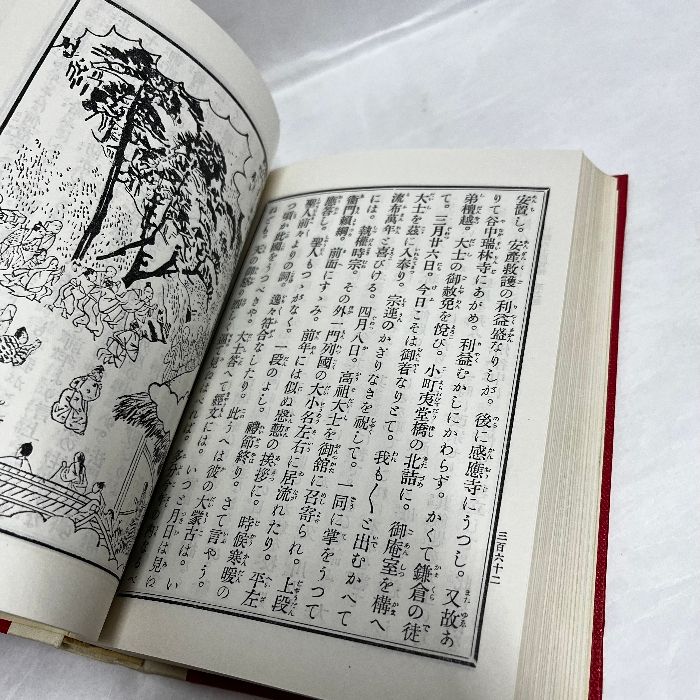 安置し。安産救護の利益盛なりしが。後に感應寺にうつし。又故あ
りて谷中瑞林寺にあがめ。利益むかしにかわらず。かくて鎌倉の徒
弟檀越。大士の御赦免を悅び。小町夷堂橋の北詰に。御庵室を構へ
て。三月廿六日。今日こそは御着なりとて。我も〱と出むかへて
大士を茲に入奉り。宗連のかぎりなきを祝して。一同に掌をうつて
流布萬年と喜びける。四月八日。高祖大士を御舘に召寄られ。上段
には。執權時宗。その外一門列國の大小名左右に居流れたり。平左
衛門頼綱。前面にすゝみ。前年には似ぬ慇懃の挨拶に。時候寒暖の
應答し。聖人もつゝがなく。一段のよし。禮節終り。さて言やう。
聖人前々よりの詞。逸々符合なしたり。此うへは彼の大蒙古は。い
つ頃か吾國をうつべきや。大士答
經文には。いつと月日は見ね
三百六十二